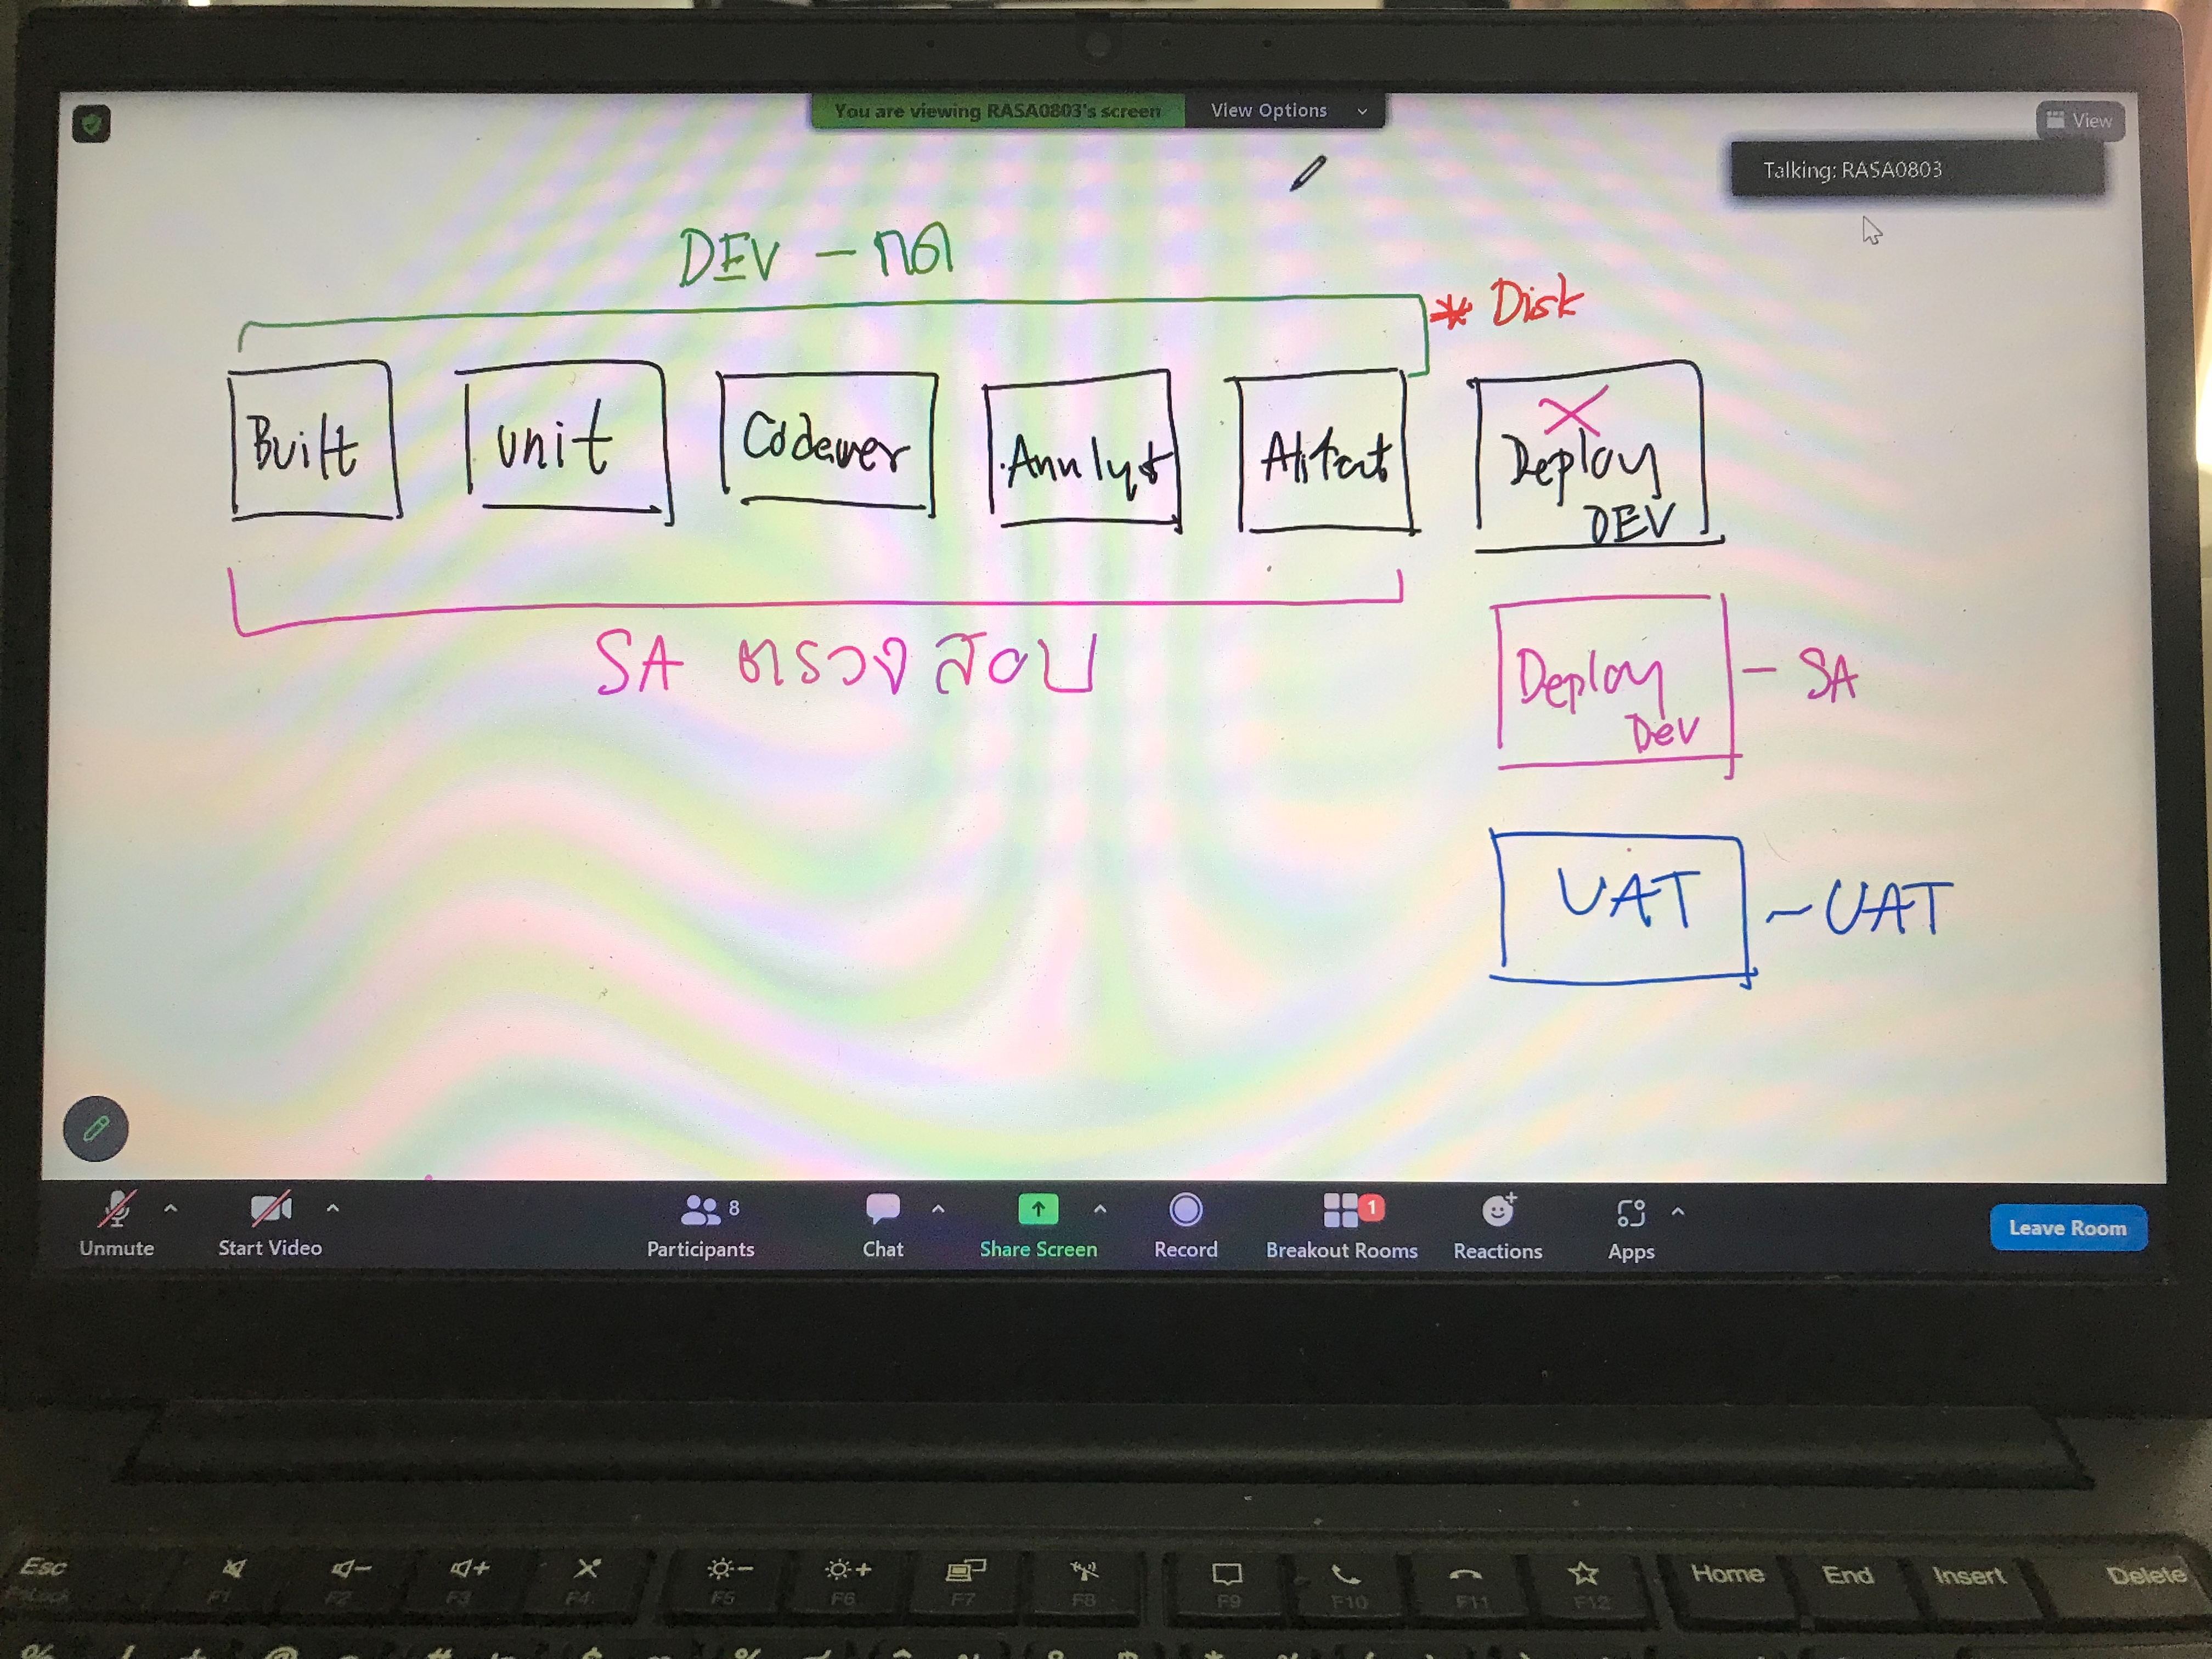 You are viewing RASA0803's screen
View Options
View
Talking: RASA0803
DEV - กด
* Disk
Built
unit
Codecover
Annlyt
Atifact
Deploy
DEV
SA ตรวจสอบ
Deploy
Dev
- SA
UAT
- UAT
Unmute
Start Video
8
Participants
Chat
Share Screen
Record
1
Breakout Rooms
Reactions
Apps
Leave Room
Esc
F1
F2
F3
F4
F5
F6
F7
F8
F9
F10
F11
F12
Home
End
Insert
Delete